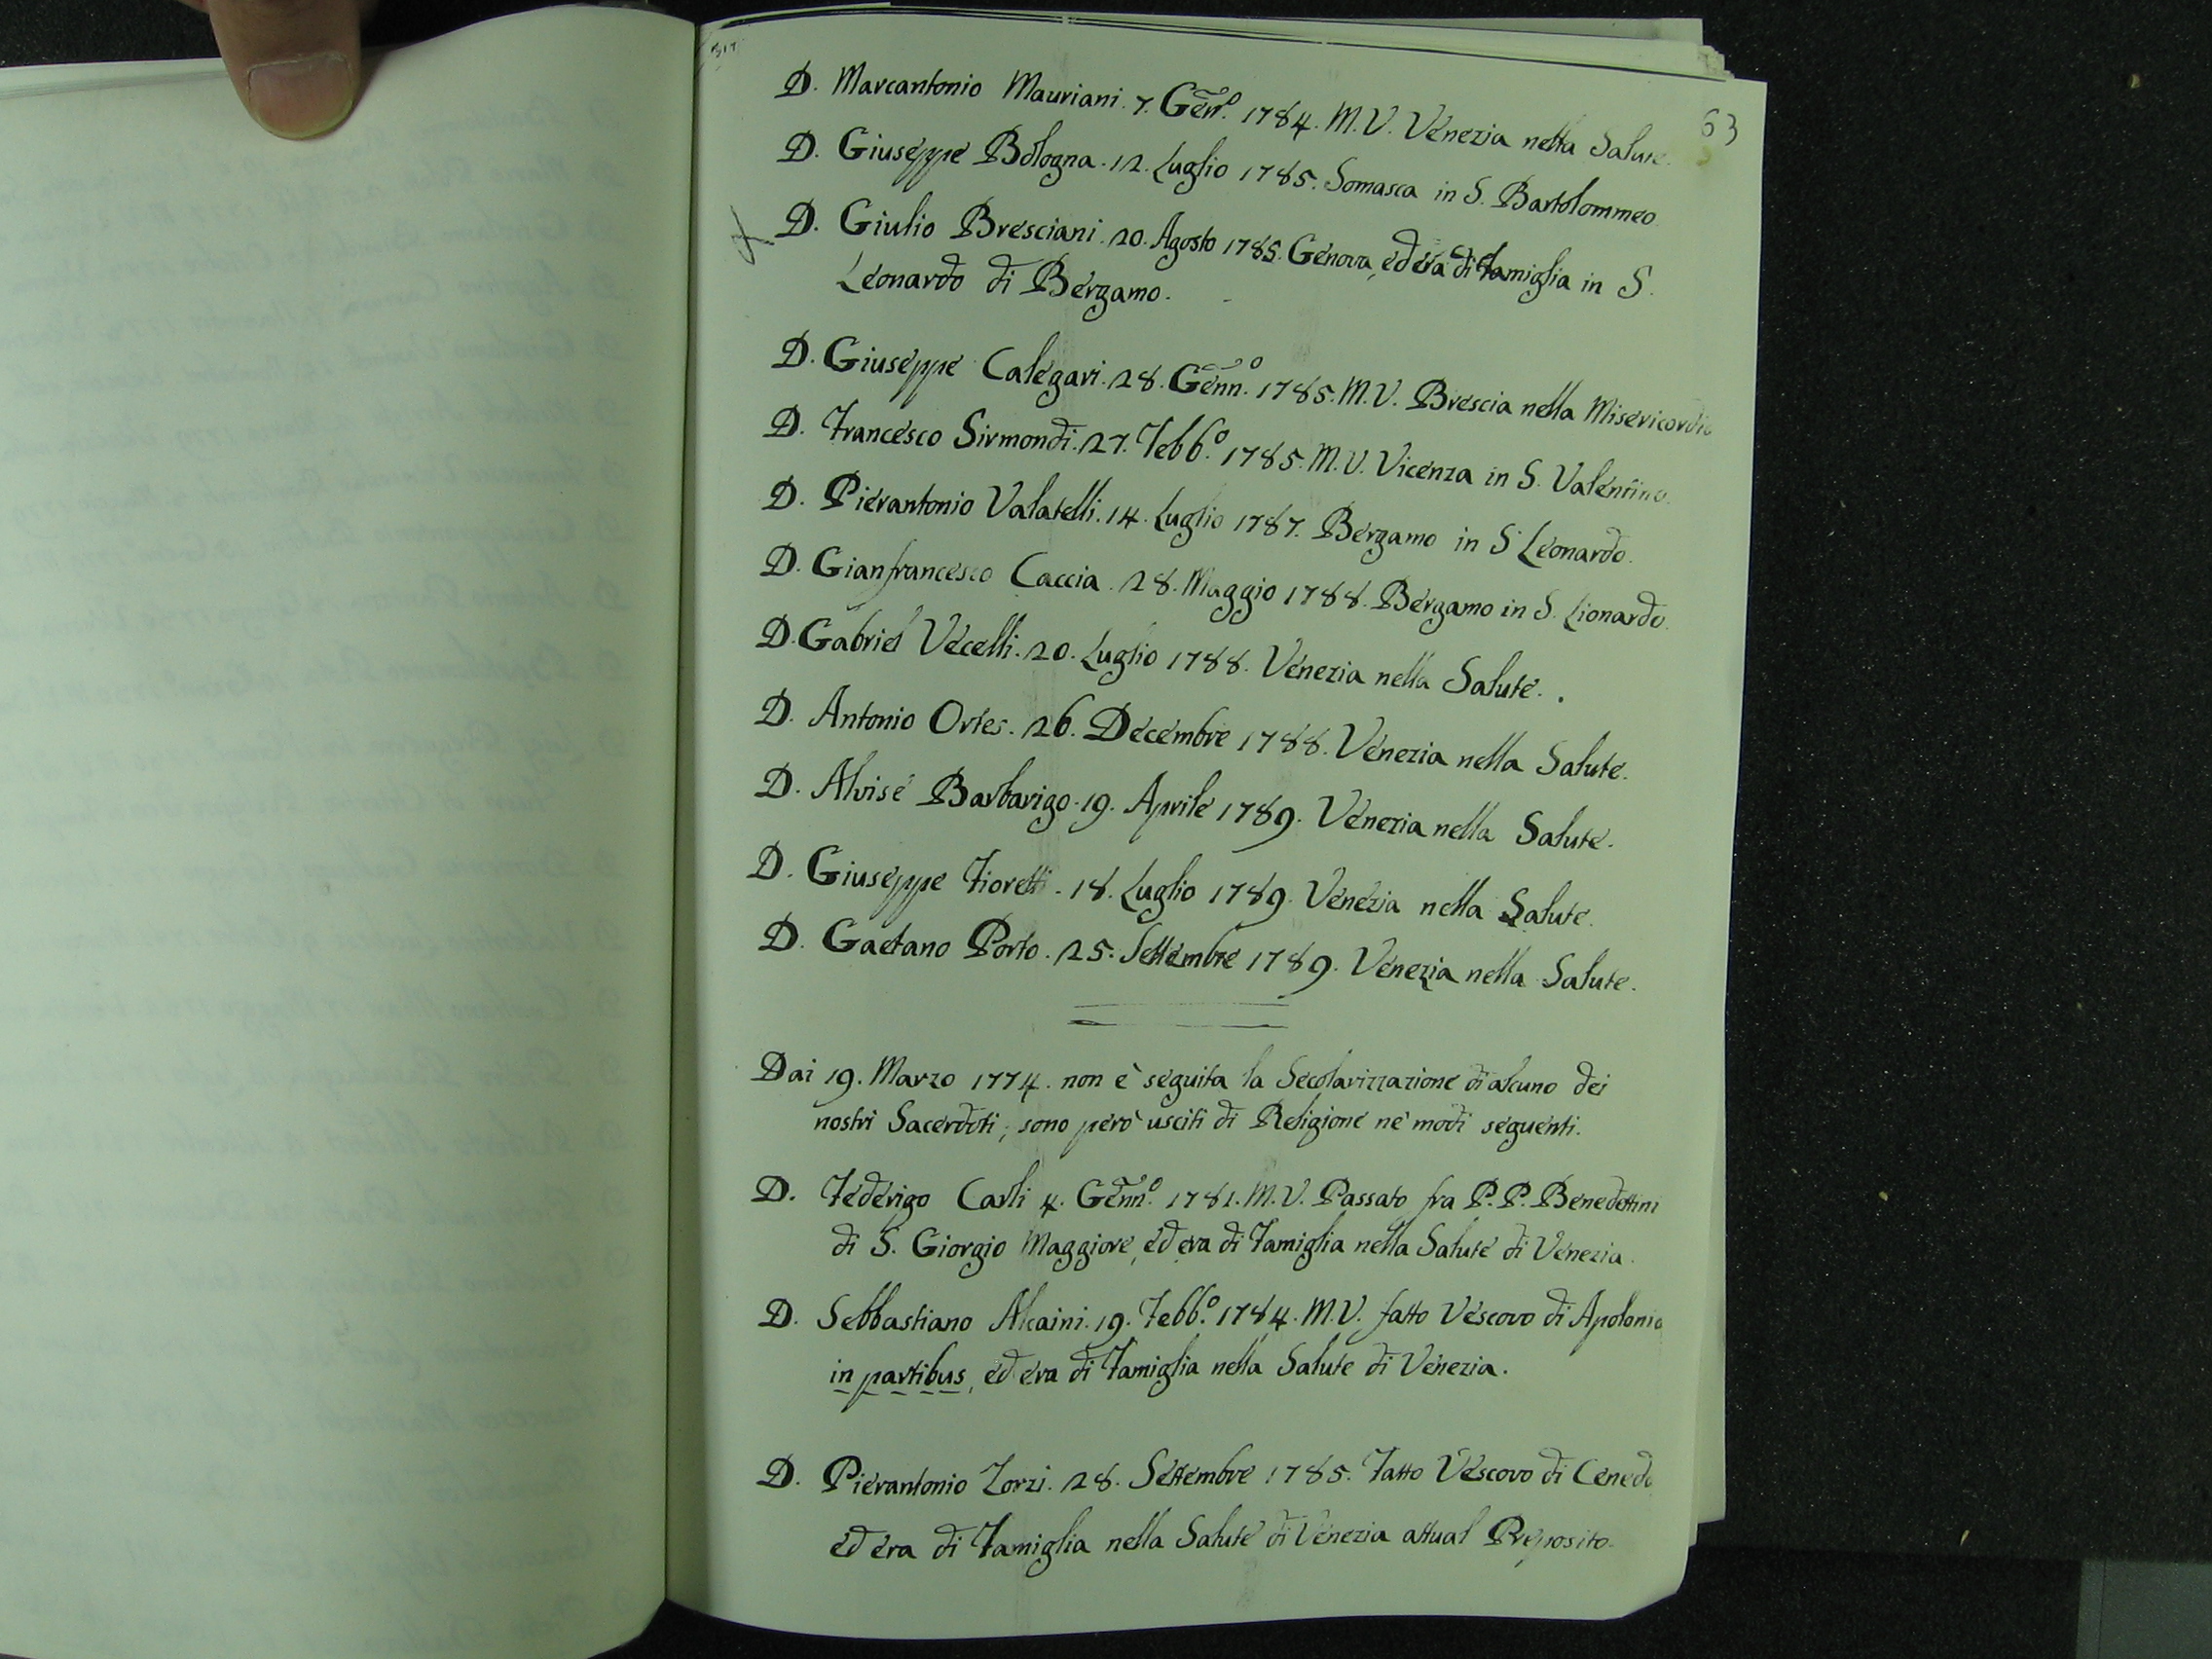 63
D. Marcantonio Mauriani. 7. Genn.º 1784. M.V. Venezia nella Salute.
D. Giuseppe Bologna. 12. Luglio 1785. Somasca in S. Bartolommeo.
D. Giulio Bresciani. 20. Agosto 1785. Genova, ed era di Famiglia in S.
Leonardo di Bergamo.
D. Giuseppe Calegari. 28. Genn.º 1785. M.V. Brescia nella Misericordia
D. Francesco Sirmondi. 27. Febb.º 1785. M.V. Vicenza in S. Valentino.
D. Pierantonio Valatelli. 14. Luglio 1787. Bergamo in S. Leonardo.
D. Gianfrancesco Caccia. 28. Maggio 1788. Bergamo in S. Lionardo.
D. Gabriel Vecelli. 20. Luglio 1788. Venezia nella Salute.
D. Antonio Ortes. 26. Decembre 1788. Venezia nella Salute.
D. Alvise Barbarigo. 19. Aprile 1789. Venezia nella Salute.
D. Giuseppe Fioretti. 18. Luglio 1789. Venezia nella Salute.
D. Gaetano Porto. 25. Settembre 1789. Venezia nella Salute.
Dai 19. Marzo 1774. non è seguita la Secolarizzazione di alcuno dei
nostri Sacerdoti; sono però usciti di Religione ne' modi seguenti.
D. Federigo Carli 4. Genn.º 1781. M.V. Passato fra P.P. Benedettini
di S. Giorgio Maggiore, ed era di Famiglia nella Salute di Venezia.
D. Sebbastiano Alcaini. 19. Febb.º 1784. M.V. fatto Vescovo di Apolonia
in partibus, ed era di Famiglia nella Salute di Venezia.
D. Pierantonio Zorzi. 28. Settembre 1785. Fatto Vescovo di Ceneda
ed era di Famiglia nella Salute di Venezia attual Preposito.